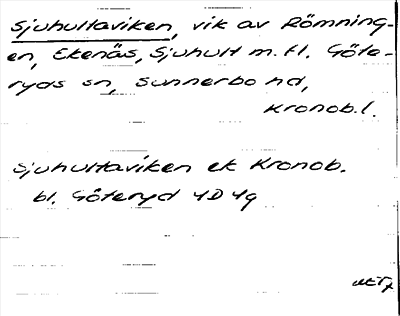 Sjuhultaviken, vik av Römning-
en, Ekenäs, Sjuhult m.fl. Göte-
ryds sn, Sunnerbo hd,
Kronob.l.
Sjuhultaviken ek Kronob.
bl. Göteryd 4D 4g